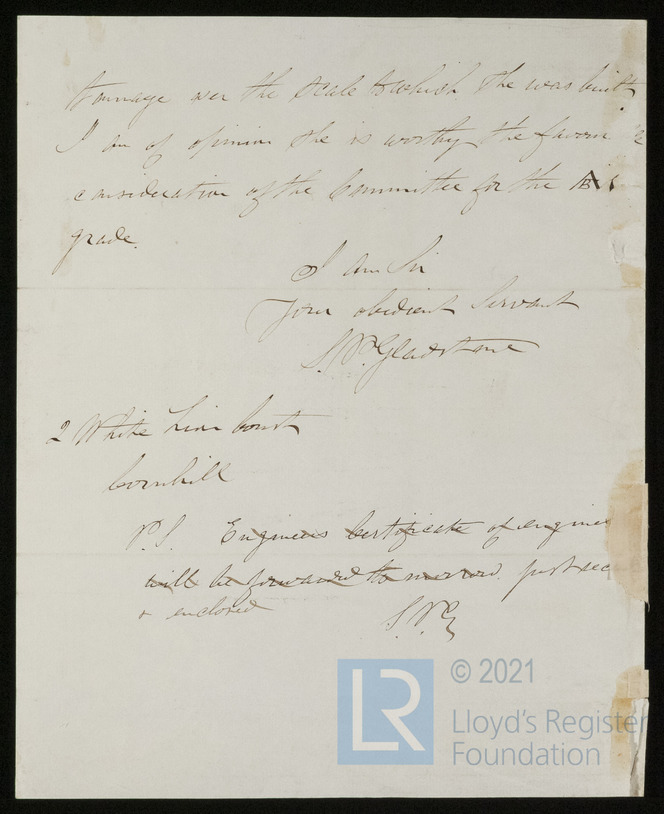 tonnage over the scale to which she was built
I am of opinion she is worthy the favour
consideration of the Committee for the Æ1
grade.
I am Sir
Your obedient Servant
S.P. Gladstone
2 White Lion Court
Cornhill
P.S. Engineers Certificate of engines
will be forwarded to morrow. just rec
+ enclosed
S.P.G
LR
© 2021
Lloyd's Register
Foundation